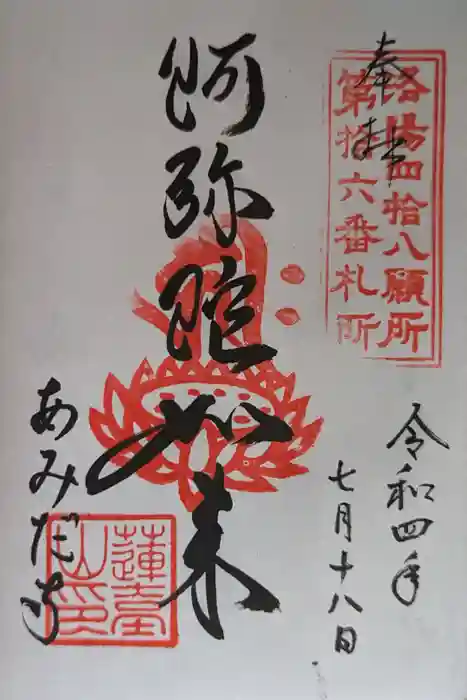 奉拝
洛陽四拾八願所
第拾六番札所
阿弥陀如来
令和四年
七月十八日
あみだ寺
蓮臺
山印